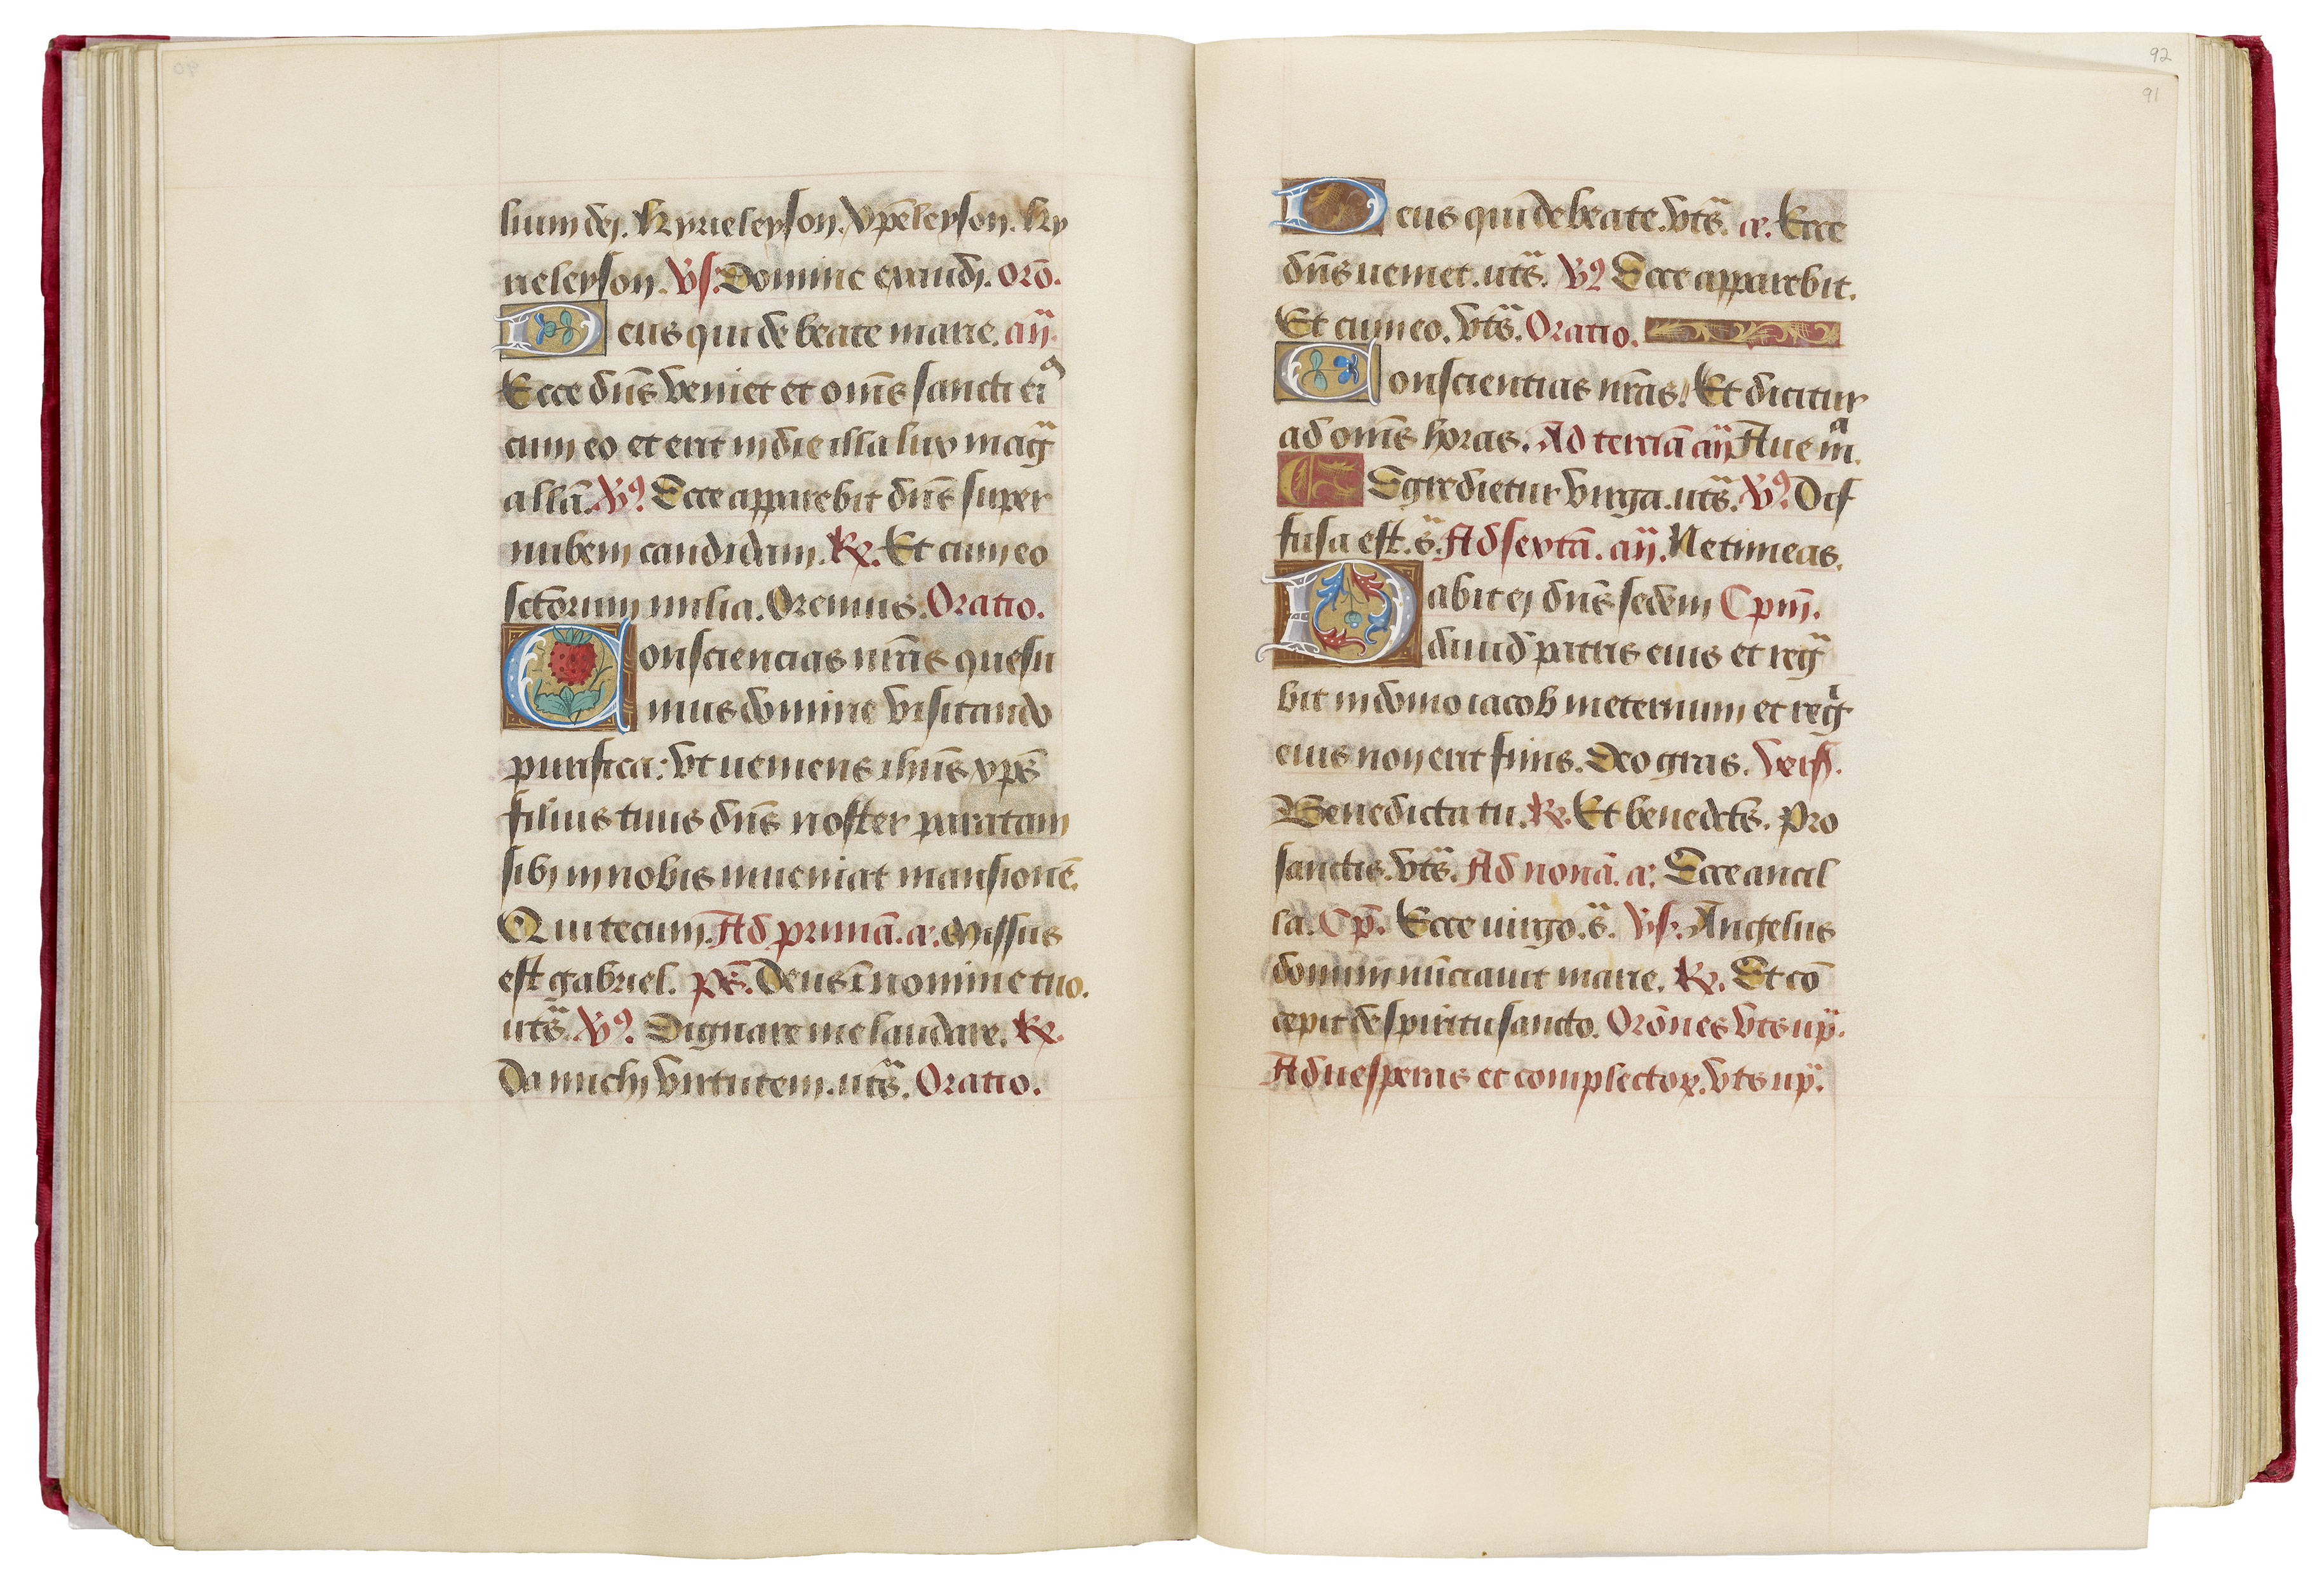 lium dei. Kyrieleyson. Xpēleyson. Ky
rieleyson. Vs. Domine exaudi. Orō.
Deus qui de beate marie. añ.
Ecce dn̄s veniet et om̄s sancti eiꝰ
cum eo et erit in die illa lux mag̃
allā. Vꝰ. Ecce apparebit dn̄s super
nubem candidam. ℞. Et cum eo
sctorum milia. Oremus. Oratio.
Consciencias nr̄as quesu
mus domine visitando
purifica: vt ueniens ihūs xp̄s
filius tuus dn̄s noster paratam
sibi in nobis inueniat mansionē.
Qui tecum. Ad primā. a. Missus
est gabriel. ps̄. Deus ī nomine tuo.
uts̃. Vꝰ. Dignare me laudare. ℞.
Da michi virtutem. uts̃. Oratio.
92
91
Deus qui de beate. vts̃. a. Ecce
dn̄s ueniet. uts̃. Vꝰ Ecce apparebit.
Et cum eo. vts̃. Oratio.
Consciencias nr̄as. Et dicitur
ad om̄s horas. Ad terciā añ Aue mᵃ.
Egredietur virga. uts̃. Vꝰ. Dif
fusa est. s̃. Ad sextā. añ. Ne timeas.
Dabit ei dn̄s sedem Cpm̄.
dauid patris eius et reg̃
bit in domo iacob in eternum et regⁱ
eius non erit finis. Deo gras. Vers.
Benedicta tu. ℞. Et benedcts. Pro
sanctis. vts̃. Ad nonā. a. Ecce ancil
la. Cp̄. Ecce uirgo. s̃. Vs. Angelus
domini nūciauit marie. ℞. Et cō
cepit de spiritu sancto. Orōnes vt sup̃.
Ad uesperas et complectoꝝ. vt sup̃.